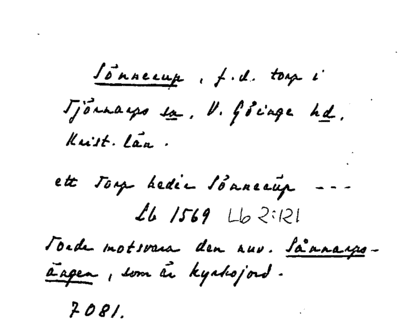 Sönnerup, f.d. torp i
Tjörnarps sn, V. Göinge hd,
Krist. län.
ett Torp hedir Sönnerüp ---
Lb 1569 Lb 2:121
Torde motsvara den nuv. Sånnarps-
ängen, som är kyrkojord.
7081.